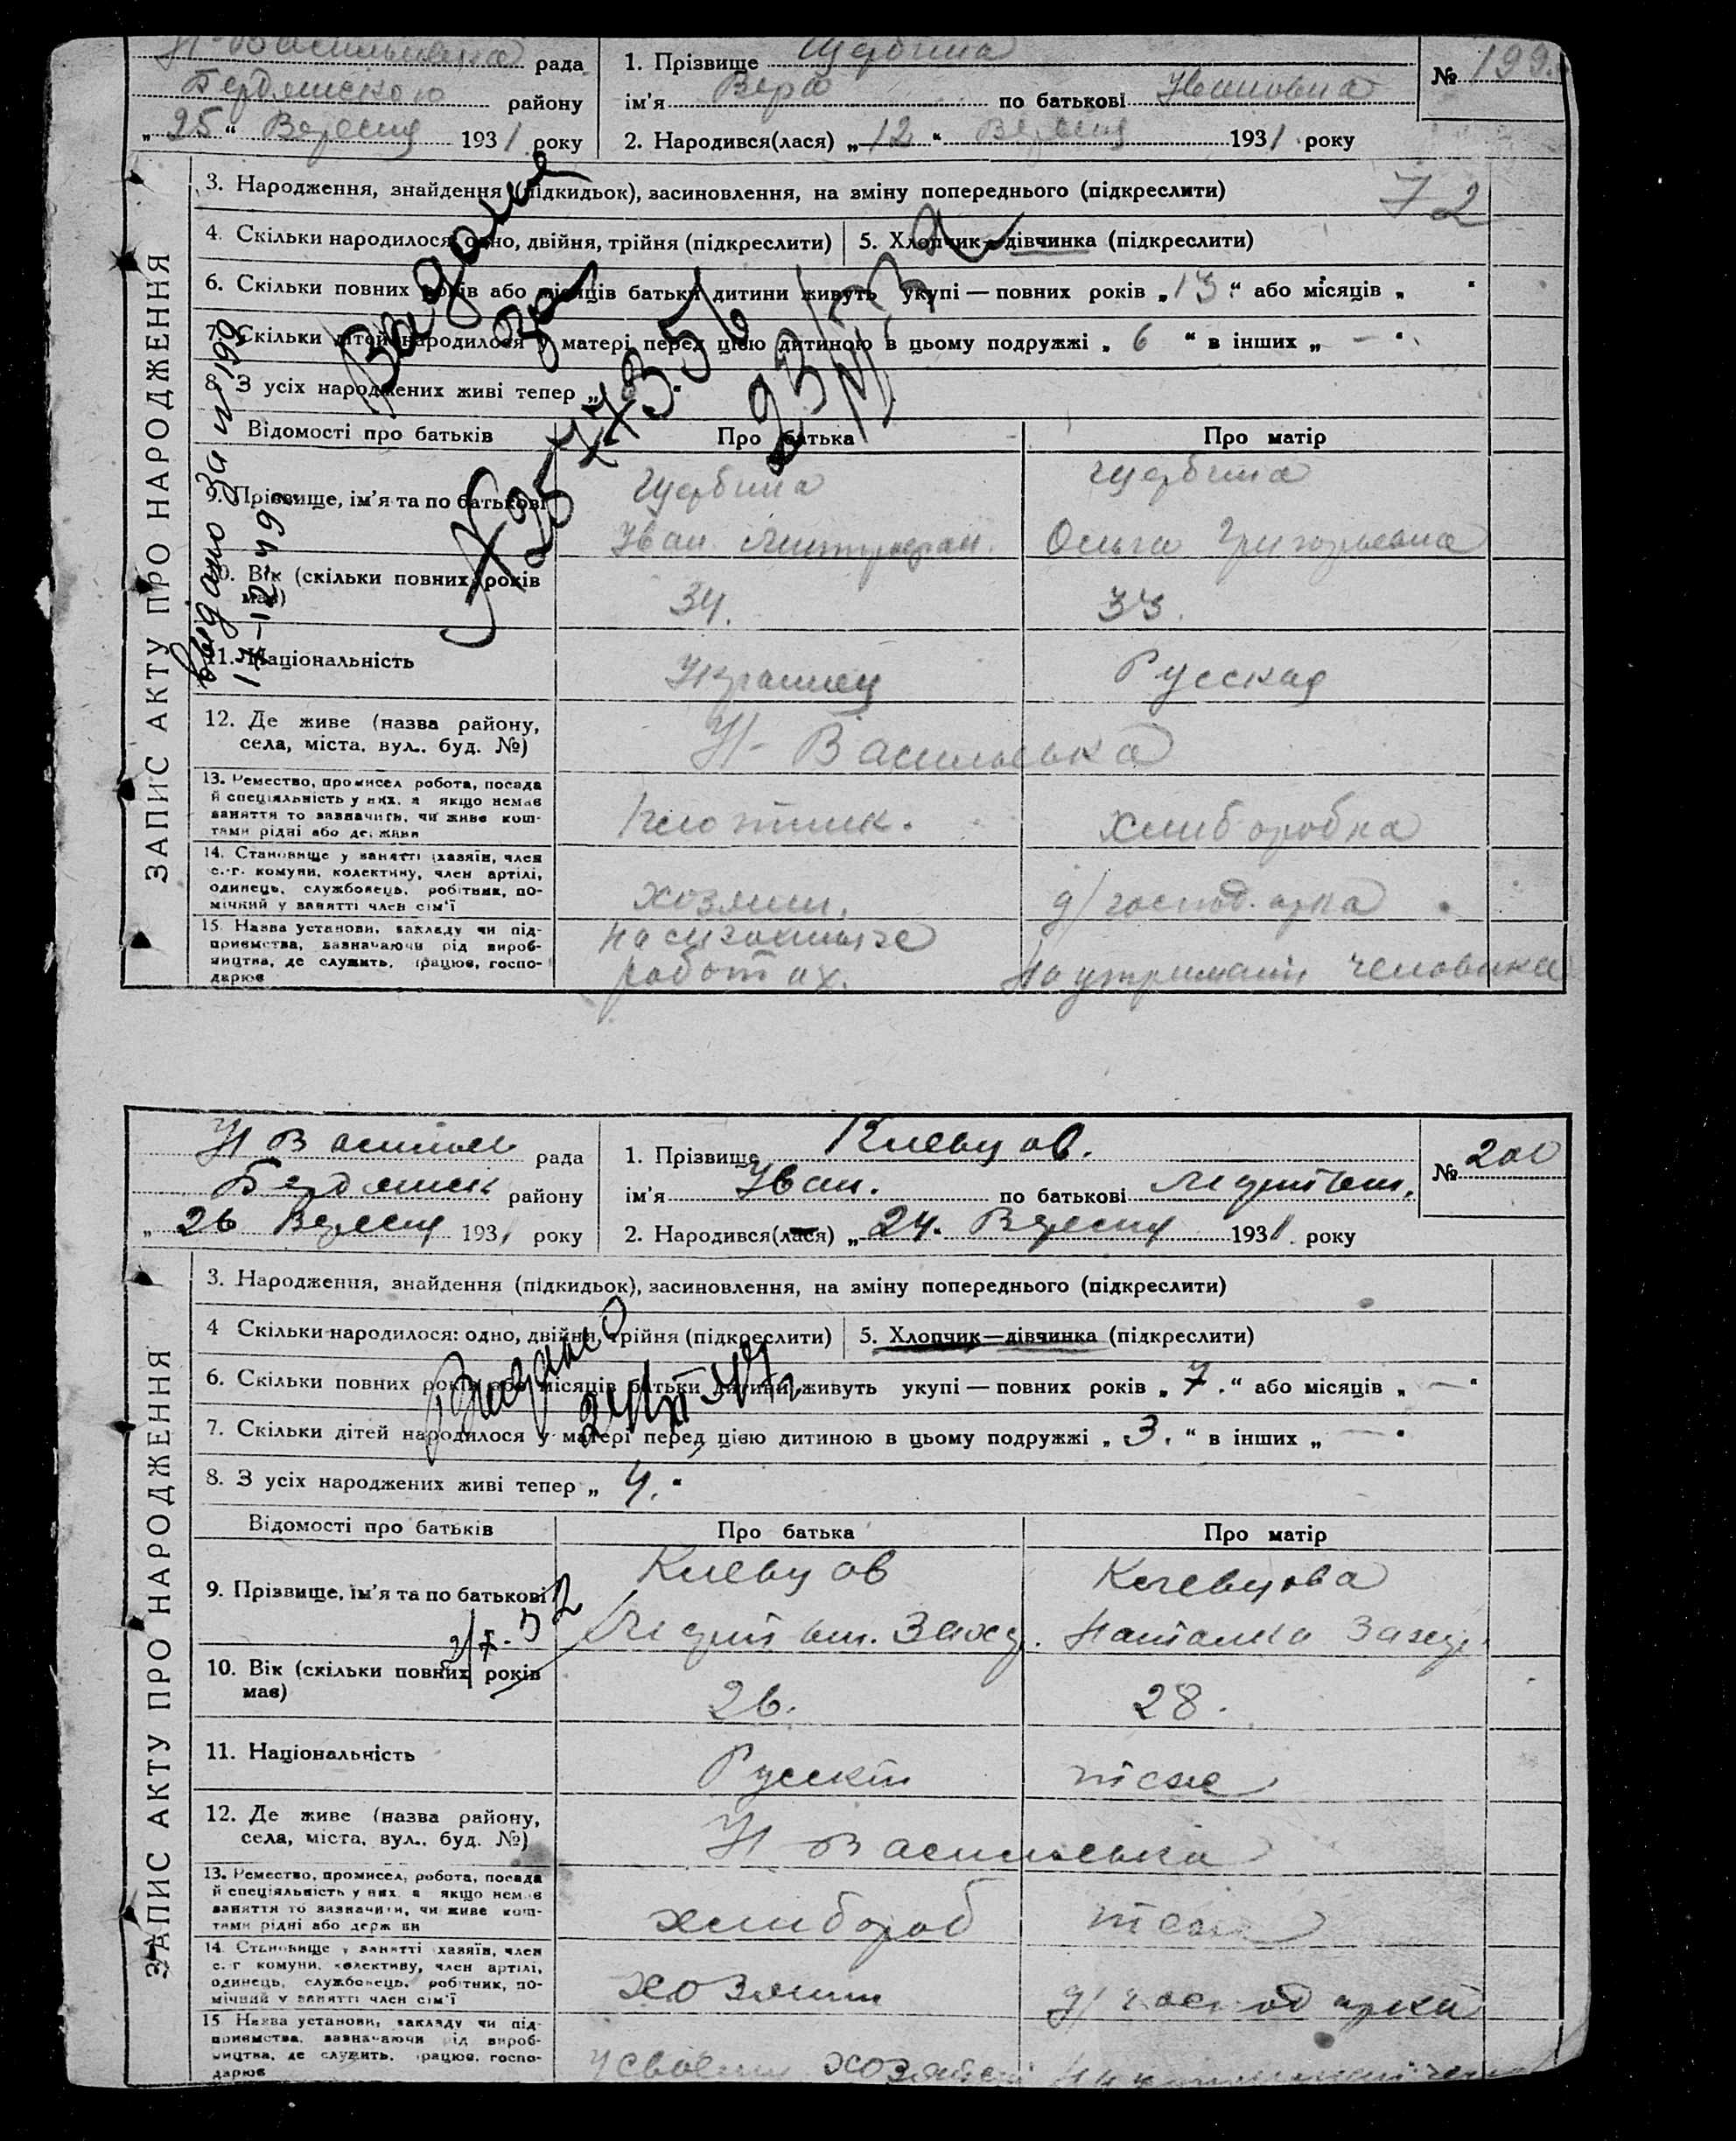 Н-Васильевка рада
Бердянского району
„ 25 “ Вересня 1931 року
1. Прізвище Щербина
ім'я Вера по батькові Ивановна
2. Народився(лася) „ 12 “ Вересня 1931 року
№ 199.
ЗАПИС АКТУ ПРО НАРОДЖЕННЯ
3. Народження, знайдення (підкидьок), засиновлення, на зміну попереднього (підкреслити)
72
4. Скільки народилося: одно, двійня, трійня (підкреслити)
5. Хлопчик—дівчинка (підкреслити)
6. Скільки повних років або місяців батьки дитини живуть укупі — повних років „ 13 “ або місяців „
7. Скільки дітей народилося у матері перед цією дитиною в цьому подружжі „ 6 “ в інших „ —
8. З усіх народжених живі тепер „
видано за № 199
Відомості про батьків
Про батька
Про матір
9. Прізвище, ім'я та по батькові
Щербина
Иван Митрофан.
Щербина
Ольга Григорьевна
10. Вік (скільки повних років має)
34.
33.
11. Національність
Украинец
Русская
12. Де живе (назва району,
села, міста, вул., буд. №)
Н-Васильевка
13. Ремество, промисел робота, посада
й спеціяльність у них, а якщо немає
заняття то зазначити, чи живе кош-
тами рідні або держави
плотник.
хлиборобка
14. Становище у занятті (хазяїн, член
с.-г. комуни, колективу, член артілі,
одинець, службовець, робітник, по-
мічний у занятті член сім'ї
хозяин.
д/господарка
15. Назва установи, закладу чи під-
приємства, зазначаючи рід вироб-
ництва, де служить, працює, госпо-
дарює
работах.
На утриманні человика
Н Василев рада
Бердянск району
„ 26 Вересня 1931 року
1. Прізвище Клевцов.
ім'я Иван. по батькові
2. Народився(лася) „ 24 “ Вересня 1931 року
№ 200
ЗАПИС АКТУ ПРО НАРОДЖЕННЯ
3. Народження, знайдення (підкидьок), засиновлення, на зміну попереднього (підкреслити)
4 Скільки народилося: одно, двійня, трійня (підкреслити)
5. Хлопчик—дівчинка (підкреслити)
6. Скільки повних років або місяців батьки дитини живуть укупі — повних років „ 7. “ або місяців „ —
7. Скільки дітей народилося у матері перед цією дитиною в цьому подружжі „ 3. “ в інших „ —
8. З усіх народжених живі тепер „ 4. “
Видано
Відомості про батьків
Про батька
Про матір
9. Прізвище, ім'я та по батькові
Клевцов
Клевцова
Наталка
10. Вік (скільки повних років
має)
26.
28.
11. Національність
Русский
теж
12. Де живе (назва району,
села, міста, вул., буд. №)
Н Васильевка
13. Ремество, промисел, робота, посада
й спеціяльність у них а якщо немає
заняття то зазначити, чи живе кош-
тами рідні або держави
хлибороб
теж
14. Становище у занятті (хазяїн, член
с.-г комуни, колективу, член артілі,
одинець, службовець, робітник, по-
мічний у занятті член сім'ї
хозяин
д/господарка
15. Назва установи, закладу чи під-
приємства, зазначаючи рід вироб-
ництва, де служить, працює, госпо-
дарює